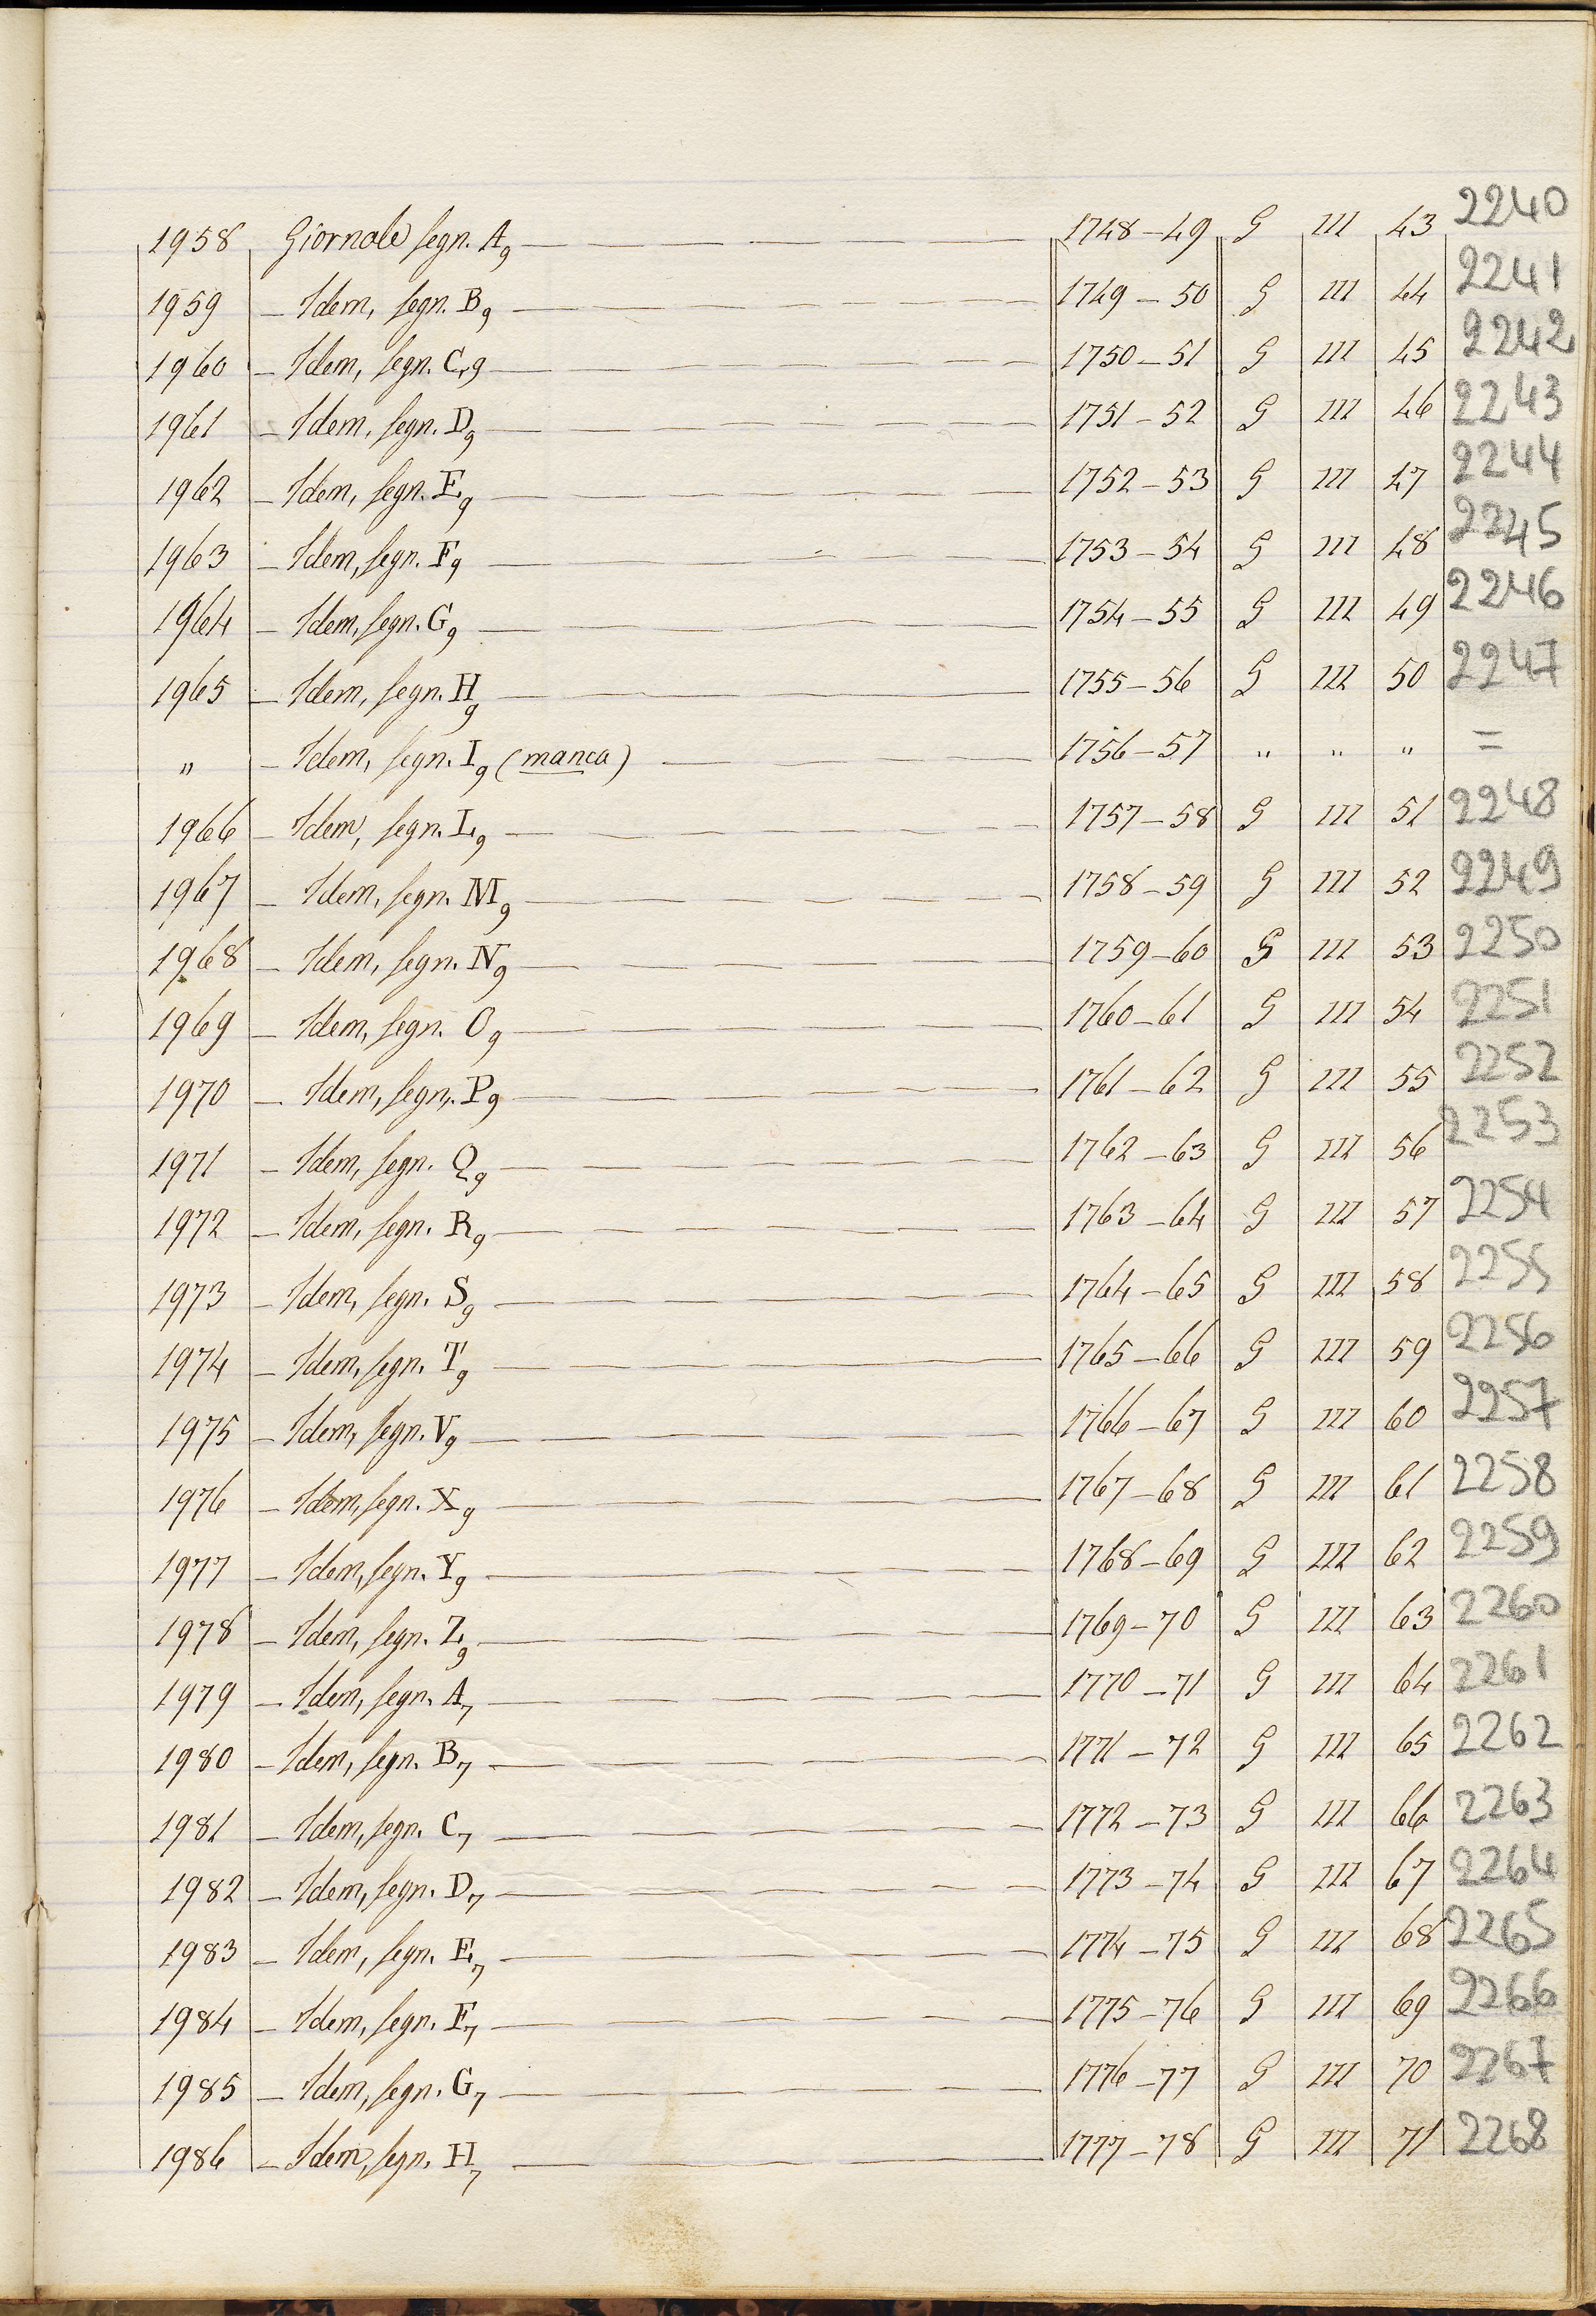 1958 Giornale segn. A9 1748-49 G III 43 2240
1959 - Idem, segn. B9 1749-50 G III 44 2241
1960 - Idem, segn. C9 1750-51 G III 45 2242
1961 - Idem, segn. D9 1751-52 G III 46 2243
1962 - Idem, segn. E9 1752-53 G III 47 2244
1963 - Idem, segn. F9 1753-54 G III 48 2245
1964 - Idem, segn. G9 1754-55 G III 49 2246
1965 - Idem, segn. H9 1755-56 G III 50 2247
" - Idem, segn. I9 (manca) 1756-57 " " " =
1966 - Idem, segn. L9 1757-58 G III 51 2248
1967 - Idem, segn. M9 1758-59 G III 52 2249
1968 - Idem, segn. N9 1759-60 G III 53 2250
1969 - Idem, segn. O9 1760-61 G III 54 2251
1970 - Idem, segn. P9 1761-62 G III 55 2252
1971 - Idem, segn. Q9 1762-63 G III 56 2253
1972 - Idem, segn. R9 1763-64 G III 57 2254
1973 - Idem, segn. S9 1764-65 G III 58 2255
1974 - Idem, segn. T9 1765-66 G III 59 2256
1975 - Idem, segn. V9 1766-67 G III 60 2257
1976 - Idem, segn. X9 1767-68 G III 61 2258
1977 - Idem, segn. Y9 1768-69 G III 62 2259
1978 - Idem, segn. Z9 1769-70 G III 63 2260
1979 - Idem, segn. A7 1770-71 G III 64 2261
1980 - Idem, segn. B7 1771-72 G III 65 2262
1981 - Idem, segn. C7 1772-73 G III 66 2263
1982 - Idem, segn. D7 1773-74 G III 67 2264
1983 - Idem, segn. E7 1774-75 G III 68 2265
1984 - Idem, segn. F7 1775-76 G III 69 2266
1985 - Idem, segn. G7 1776-77 G III 70 2267
1986 - Idem, segn. H7 1777-78 G III 71 2268